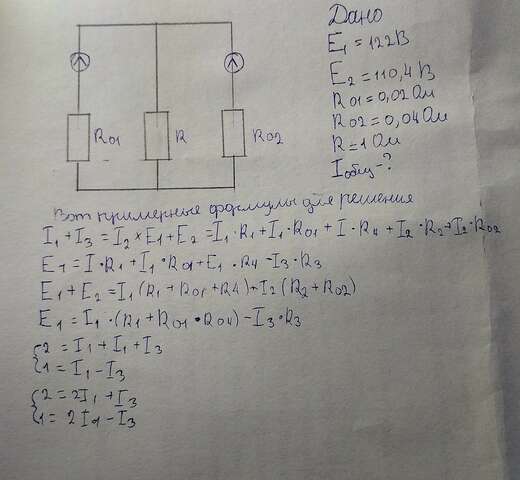 Дано
E₁ = 122 В
E₂ = 110,4 В
R01 = 0,02 Ом
R02 = 0,04 Ом
R = 1 Ом
Iобщ - ?
R01
R
R02
Вот примерные формулы для решения
I₁ + I₃ = I₂ × E₁ + E₂ = I₁·R₁ + I₁·R01 + I·R4 + I₂·R₂ + I₂·R02
E1 = I·R₁ + I₁·R01 + E₁·R4 - I₃·R₃
E₁ + E₂ = I₁(R₁ + R01 + R4) + I₂(R₂ + R02)
E₁ = I₁·(R₁ + R01·R04) - I₃·R₃
{2 = I₁ + I₁ + I₃
{1 = I₁ - I₃
{2 = 2I₁ + I₃
{1 = 2I1 - I₃